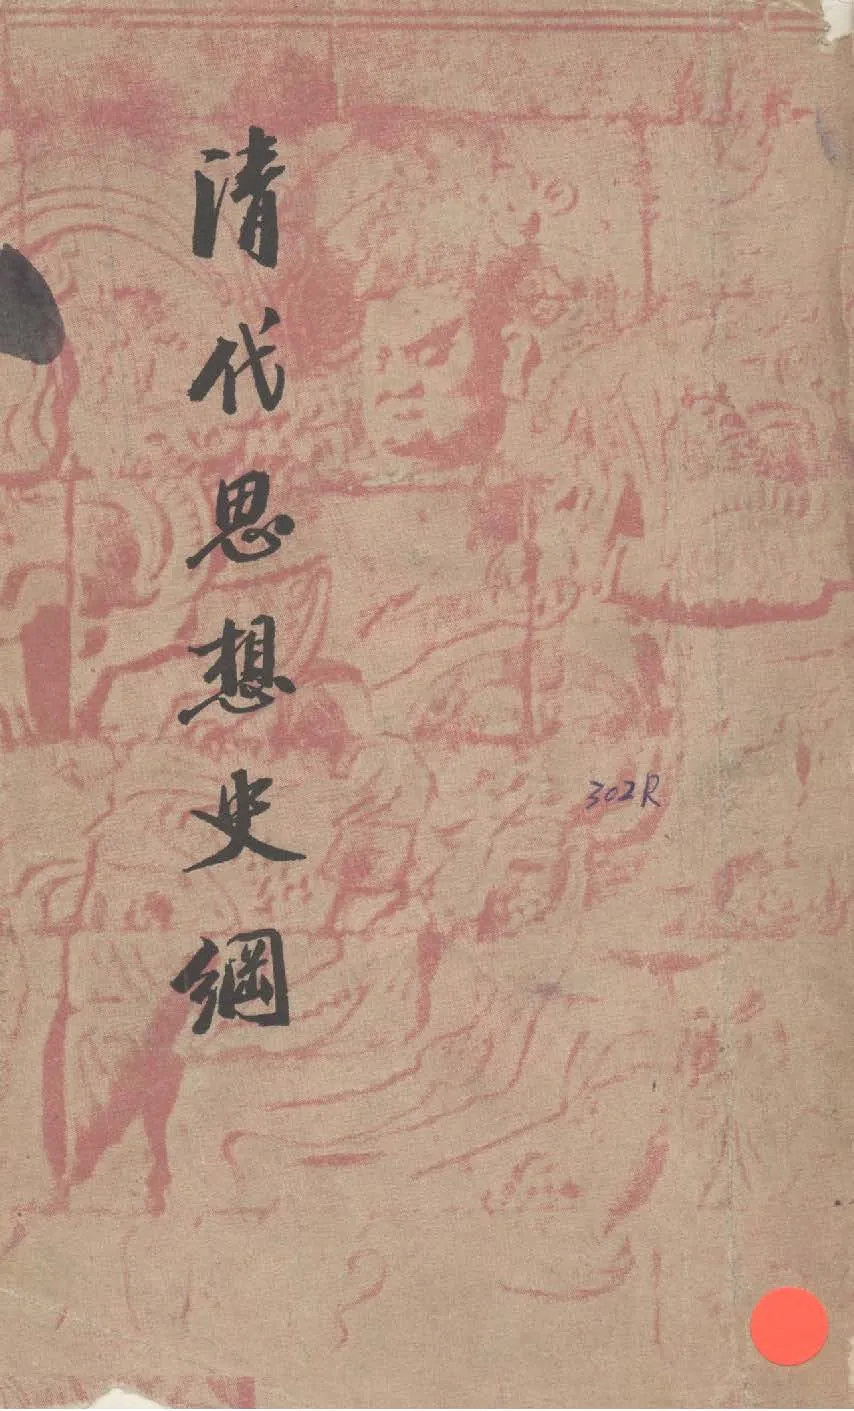 清代思想史綱
302R